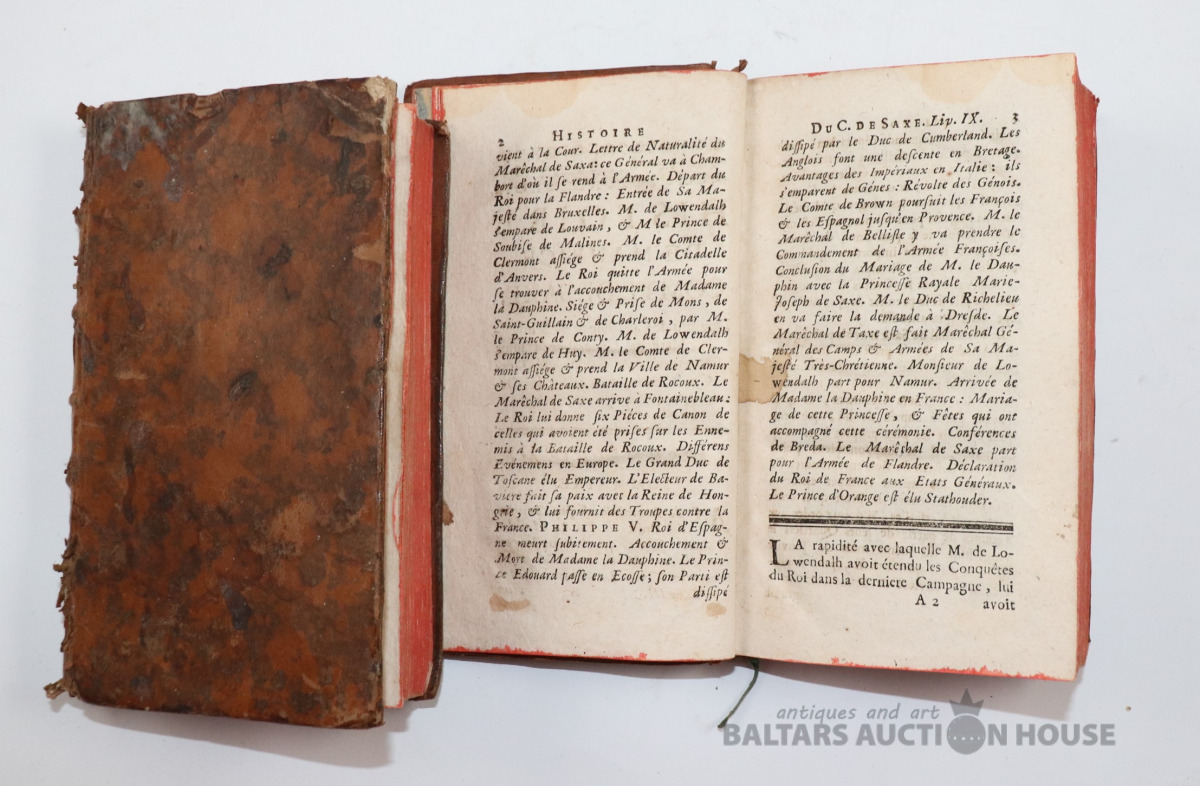 2 HISTOIRE
vient à la Cour. Lettre de Naturalité du
Maréchal de Saxe: ce Général va à Cham-
bort d'où il se rend à l'Armée. Départ du
Roi pour la Flandre: Entrée de Sa Ma-
jesté dans Bruxelles. M. de Lowendalh
s'empare de Louvain, & M le Prince de
Soubise de Malines. M. le Comte de
Clermont assiége & prend la Citadelle
d'Anvers. Le Roi quitte l'Armée pour
se trouver à l'accouchement de Madame
la Dauphine. Siége & Prise de Mons, de
Saint-Guillain & de Charleroi, par M.
le Prince de Conty. M. de Lowendalh
s'empare de Huy. M. le Comte de Cler-
mont assiége & prend la Ville de Namur
& ses Châteaux. Bataille de Rocoux. Le
Maréchal de Saxe arrive à Fontainebleau:
Le Roi lui donne six Piéces de Canon de
celles qui avoient été prises sur les Enne-
mis à la Bataille de Rocoux. Différens
Evénemens en Europe. Le Grand Duc de
Toscane élu Empereur. L'Electeur de Ba-
viere fait sa paix avec la Reine de Hon-
grie, & lui fournit des Troupes contre la
France. PHILIPPE V. Roi d'Espag-
ne meurt subitement. Accouchement &
Mort de Madame la Dauphine. Le Prin-
ce Edouard passe en Ecosse; son Parti est
dissipé
DU C. DE SAXE. Liv. IX. 3
dissipé par le Duc de Cumberland. Les
Anglois font une descente en Bretage.
Avantages des Impériaux en Italie: ils
s'emparent de Génes: Révolte des Génois.
Le Comte de Brown poursuit les François
& les Espagnol jusqu'en Provence. M. le
Maréchal de Bellisle y va prendre le
Commandement de l'Armée Françoises.
Conclusion du Mariage de M. le Dau-
phin avec la Princesse Rayale Marie-
Joseph de Saxe. M. le Duc de Richelieu
en va faire la demande à Dresde. Le
Maréchal de Taxe est fait Maréchal Gé-
néral des Camps & Armées de Sa Ma-
jesté Très-Chrétienne. Monsieur de Lo-
wendalh part pour Namur. Arrivée de
Madame la Dauphine en France: Maria-
ge de cette Princesse, & Fêtes qui ont
accompagné cette cérémonie. Conférences
de Breda. Le Maréchal de Saxe part
pour l'Armée de Flandre. Déclaration
du Roi de France aux Etats Généraux.
Le Prince d'Orange est élu Stathouder.
LA rapidité avec laquelle M. de Lo-
wendalh avoit étendu les Conquêtes
du Roi dans la derniere Campagne, lui
A 2 avoit
antiques and art
BALTARS AUCTION HOUSE